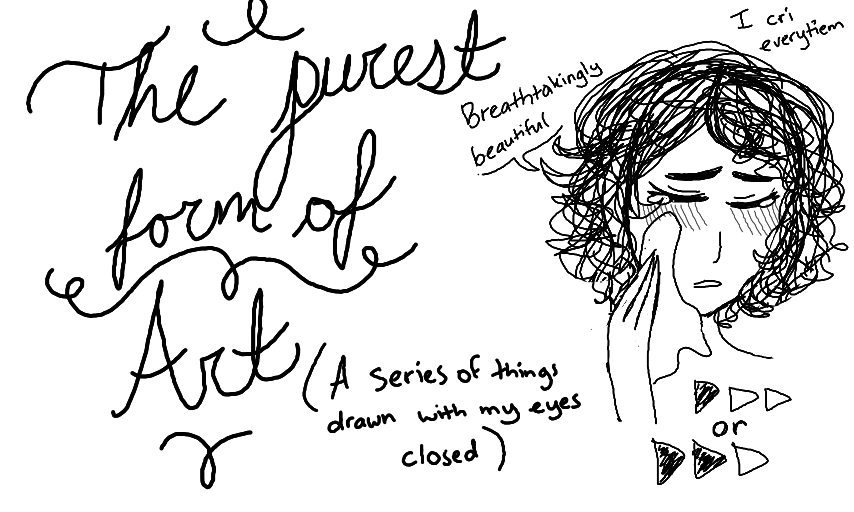 The purest
form of
Art
(A series of things
drawn with my eyes
closed)
Breathtakingly
beautiful
I cri
everytiem
or